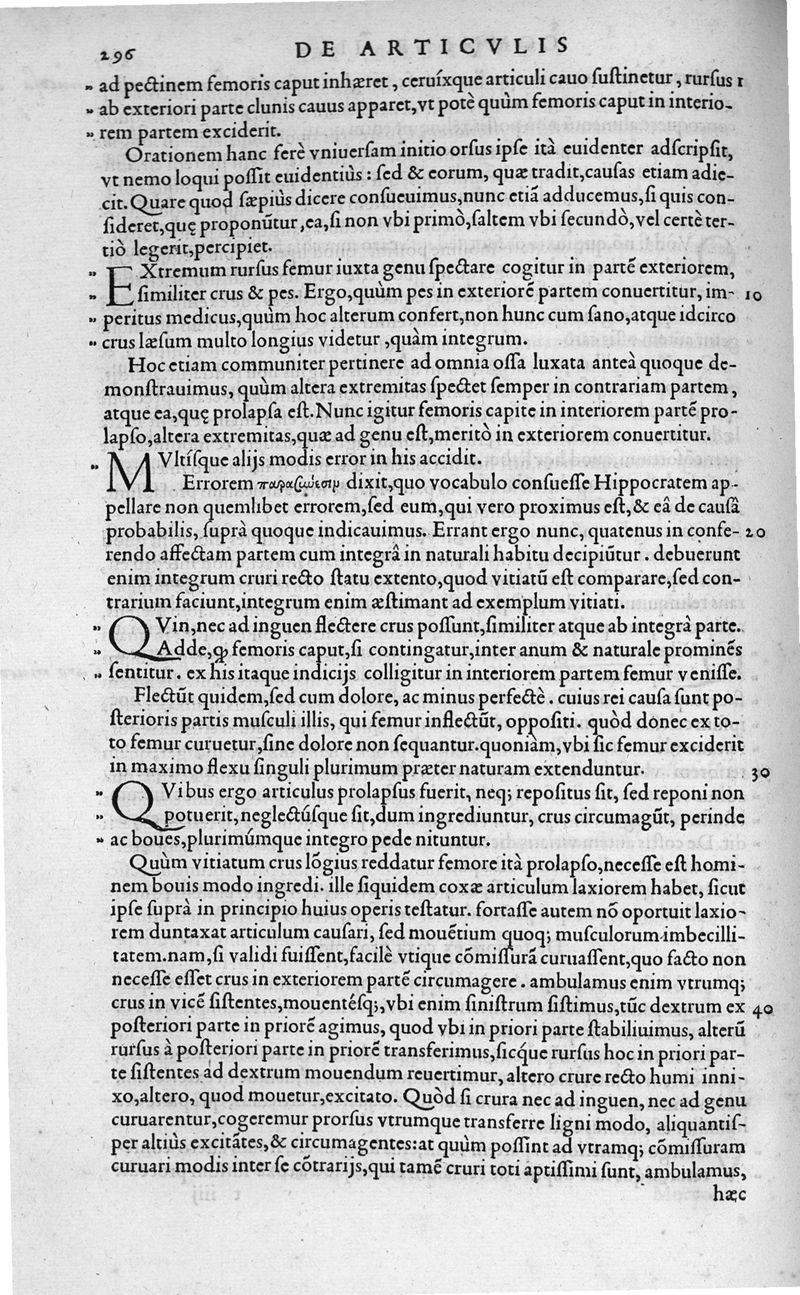 296 DE ARTICVLIS
„ ad pectinem femoris caput inhæret, ceruíxque articuli cauo ſuſtinetur, rurſus 1
„ ab exteriori parte clunis cauus apparet, vt potè quùm femoris caput in interio-
„ rem partem exciderit.
Orationem hanc ferè vniuerſam initio orſus ipſe ità euidenter adſcripſit,
vt nemo loqui poſſit euidentiùs : ſed & eorum, quæ tradit, cauſas etiam adie-
cit. Quare quod ſæpiùs dicere conſueuimus, nunc etiã adducemus, ſi quis con-
ſideret, quę proponũtur, ea, ſi non vbi primò, ſaltem vbi ſecundò, vel certè ter-
tiò legerit, percipiet.
„ EXtremum rurſus femur iuxta genu ſpectare cogitur in partẽ exteriorem,
„ ſimiliter crus & pes. Ergo, quùm pes in exteriorẽ partem conuertitur, im- 10
„ peritus medicus, quùm hoc alterum confert, non hunc cum ſano, atque idcirco
„ crus læſum multo longius videtur, quàm integrum.
Hoc etiam communiter pertinere ad omnia oſſa luxata anteà quoque de-
monſtrauimus, quùm altera extremitas ſpectet ſemper in contrariam partem,
atque ea, quę prolapſa eſt. Nunc igitur femoris capite in interiorem partẽ pro-
lapſo, altera extremitas, quæ ad genu eſt, meritò in exteriorem conuertitur.
„ MVltíſque alijs modis error in his accidit.
Errorem dixit, quo vocabulo conſueſſe Hippocratem ap-
pellare non quemlibet errorem, ſed eum, qui vero proximus eſt, & eâ de cauſâ
probabilis, ſuprà quoque indicauimus. Errant ergo nunc, quatenus in confe- 20
rendo affectam partem cum integrâ in naturali habitu decipiũtur. debuerunt
enim integrum cruri recto ſtatu extento, quod vitiatũ eſt comparare, ſed con-
trarium faciunt, integrum enim æſtimant ad exemplum vitiati.
„ QVin, nec ad inguen flectere crus poſſunt, ſimiliter atque ab integrâ parte.
„ Adde, ꝙ femoris caput, ſi contingatur, inter anum & naturale prominẽs
„ ſentitur. ex his itaque indicijs colligitur in interiorem partem femur veniſſe.
Flectũt quidem, ſed cum dolore, ac minus perfectè. cuius rei cauſa ſunt po-
ſterioris partis muſculi illis, qui femur inflectũt, oppoſiti. quòd donec ex to-
to femur curuetur, ſine dolore non ſequantur. quoniàm, vbi ſic femur exciderit
in maximo flexu ſinguli plurimum præter naturam extenduntur. 30
„ QVibus ergo articulus prolapſus fuerit, neq; repoſitus ſit, ſed reponi non
„ potuerit, neglectúſque ſit, dum ingrediuntur, crus circumagũt, perinde
„ ac boues, plurimúmque integro pede nituntur.
Quùm vitiatum crus lõgius reddatur femore ità prolapſo, neceſſe eſt homi-
nem bouis modo ingredi. ille ſiquidem coxæ articulum laxiorem habet, ſicut
ipſe ſuprà in principio huius operis teſtatur. fortaſſe autem nõ oportuit laxio-
rem duntaxat articulum cauſari, ſed mouẽtium quoq; muſculorum imbecilli-
tatem. nam, ſi validi fuiſſent, facilè vtique cõmiſſurã curuaſſent, quo facto non
neceſſe eſſet crus in exteriorem partẽ circumagere. ambulamus enim vtrumq;
crus in vicẽ ſiſtentes, mouentéſq;, vbi enim ſiniſtrum ſiſtimus, tũc dextrum ex 40
poſteriori parte in priorẽ agimus, quod vbi in priori parte ſtabiliuimus, alterũ
rurſus à poſteriori parte in priorẽ transferimus, ſicq́ue rurſus hoc in priori par-
te ſiſtentes ad dextrum mouendum reuertimur, altero crure recto humi inni-
xo, altero, quod mouetur, excitato. Quòd ſi crura nec ad inguen, nec ad genu
curuarentur, cogeremur prorſus vtrumque transferre ligni modo, aliquantiſ-
per altiùs excitãtes, & circumagentes: at quùm poſſint ad vtramq; cõmiſſuram
curuari modis inter ſe cõtrarijs, qui tamẽ cruri toti aptiſſimi ſunt, ambulamus,
hæc